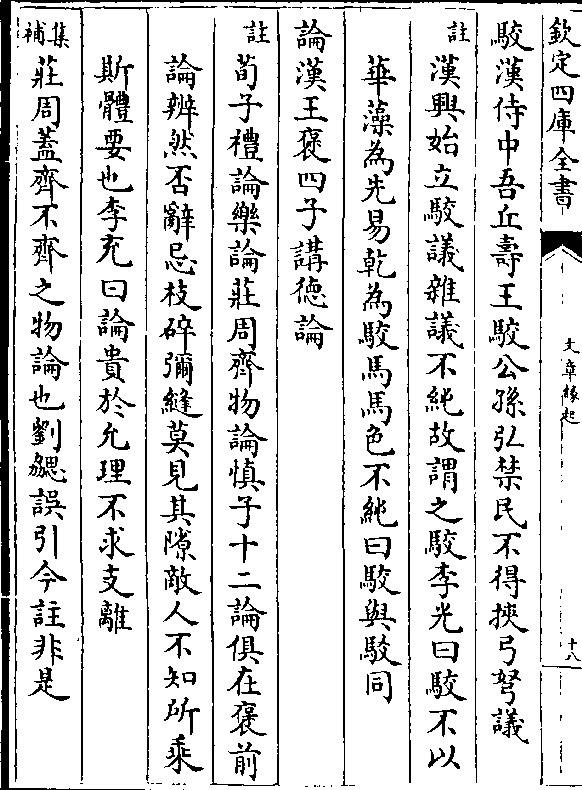 欽定四庫全書
文章緣起
十八
駮漢侍中吾丘壽王駮公孫弘禁民不得挾弓弩議
註
漢興始立駮議雜議不純故謂之駮李充曰駮不以
華藻為先易乾為駮馬馬色不純曰駮與駮同
論漢王褒四子講德論
註
荀子禮論樂論莊周齊物論慎子十二論俱在褒前
論辨然否辭忌枝碎彌縫莫見其隙敵人不知所乘
斯體要也李充曰論貴於允理不求支離
補集
莊周蓋齊不齊之物論也劉勰誤引今註非是